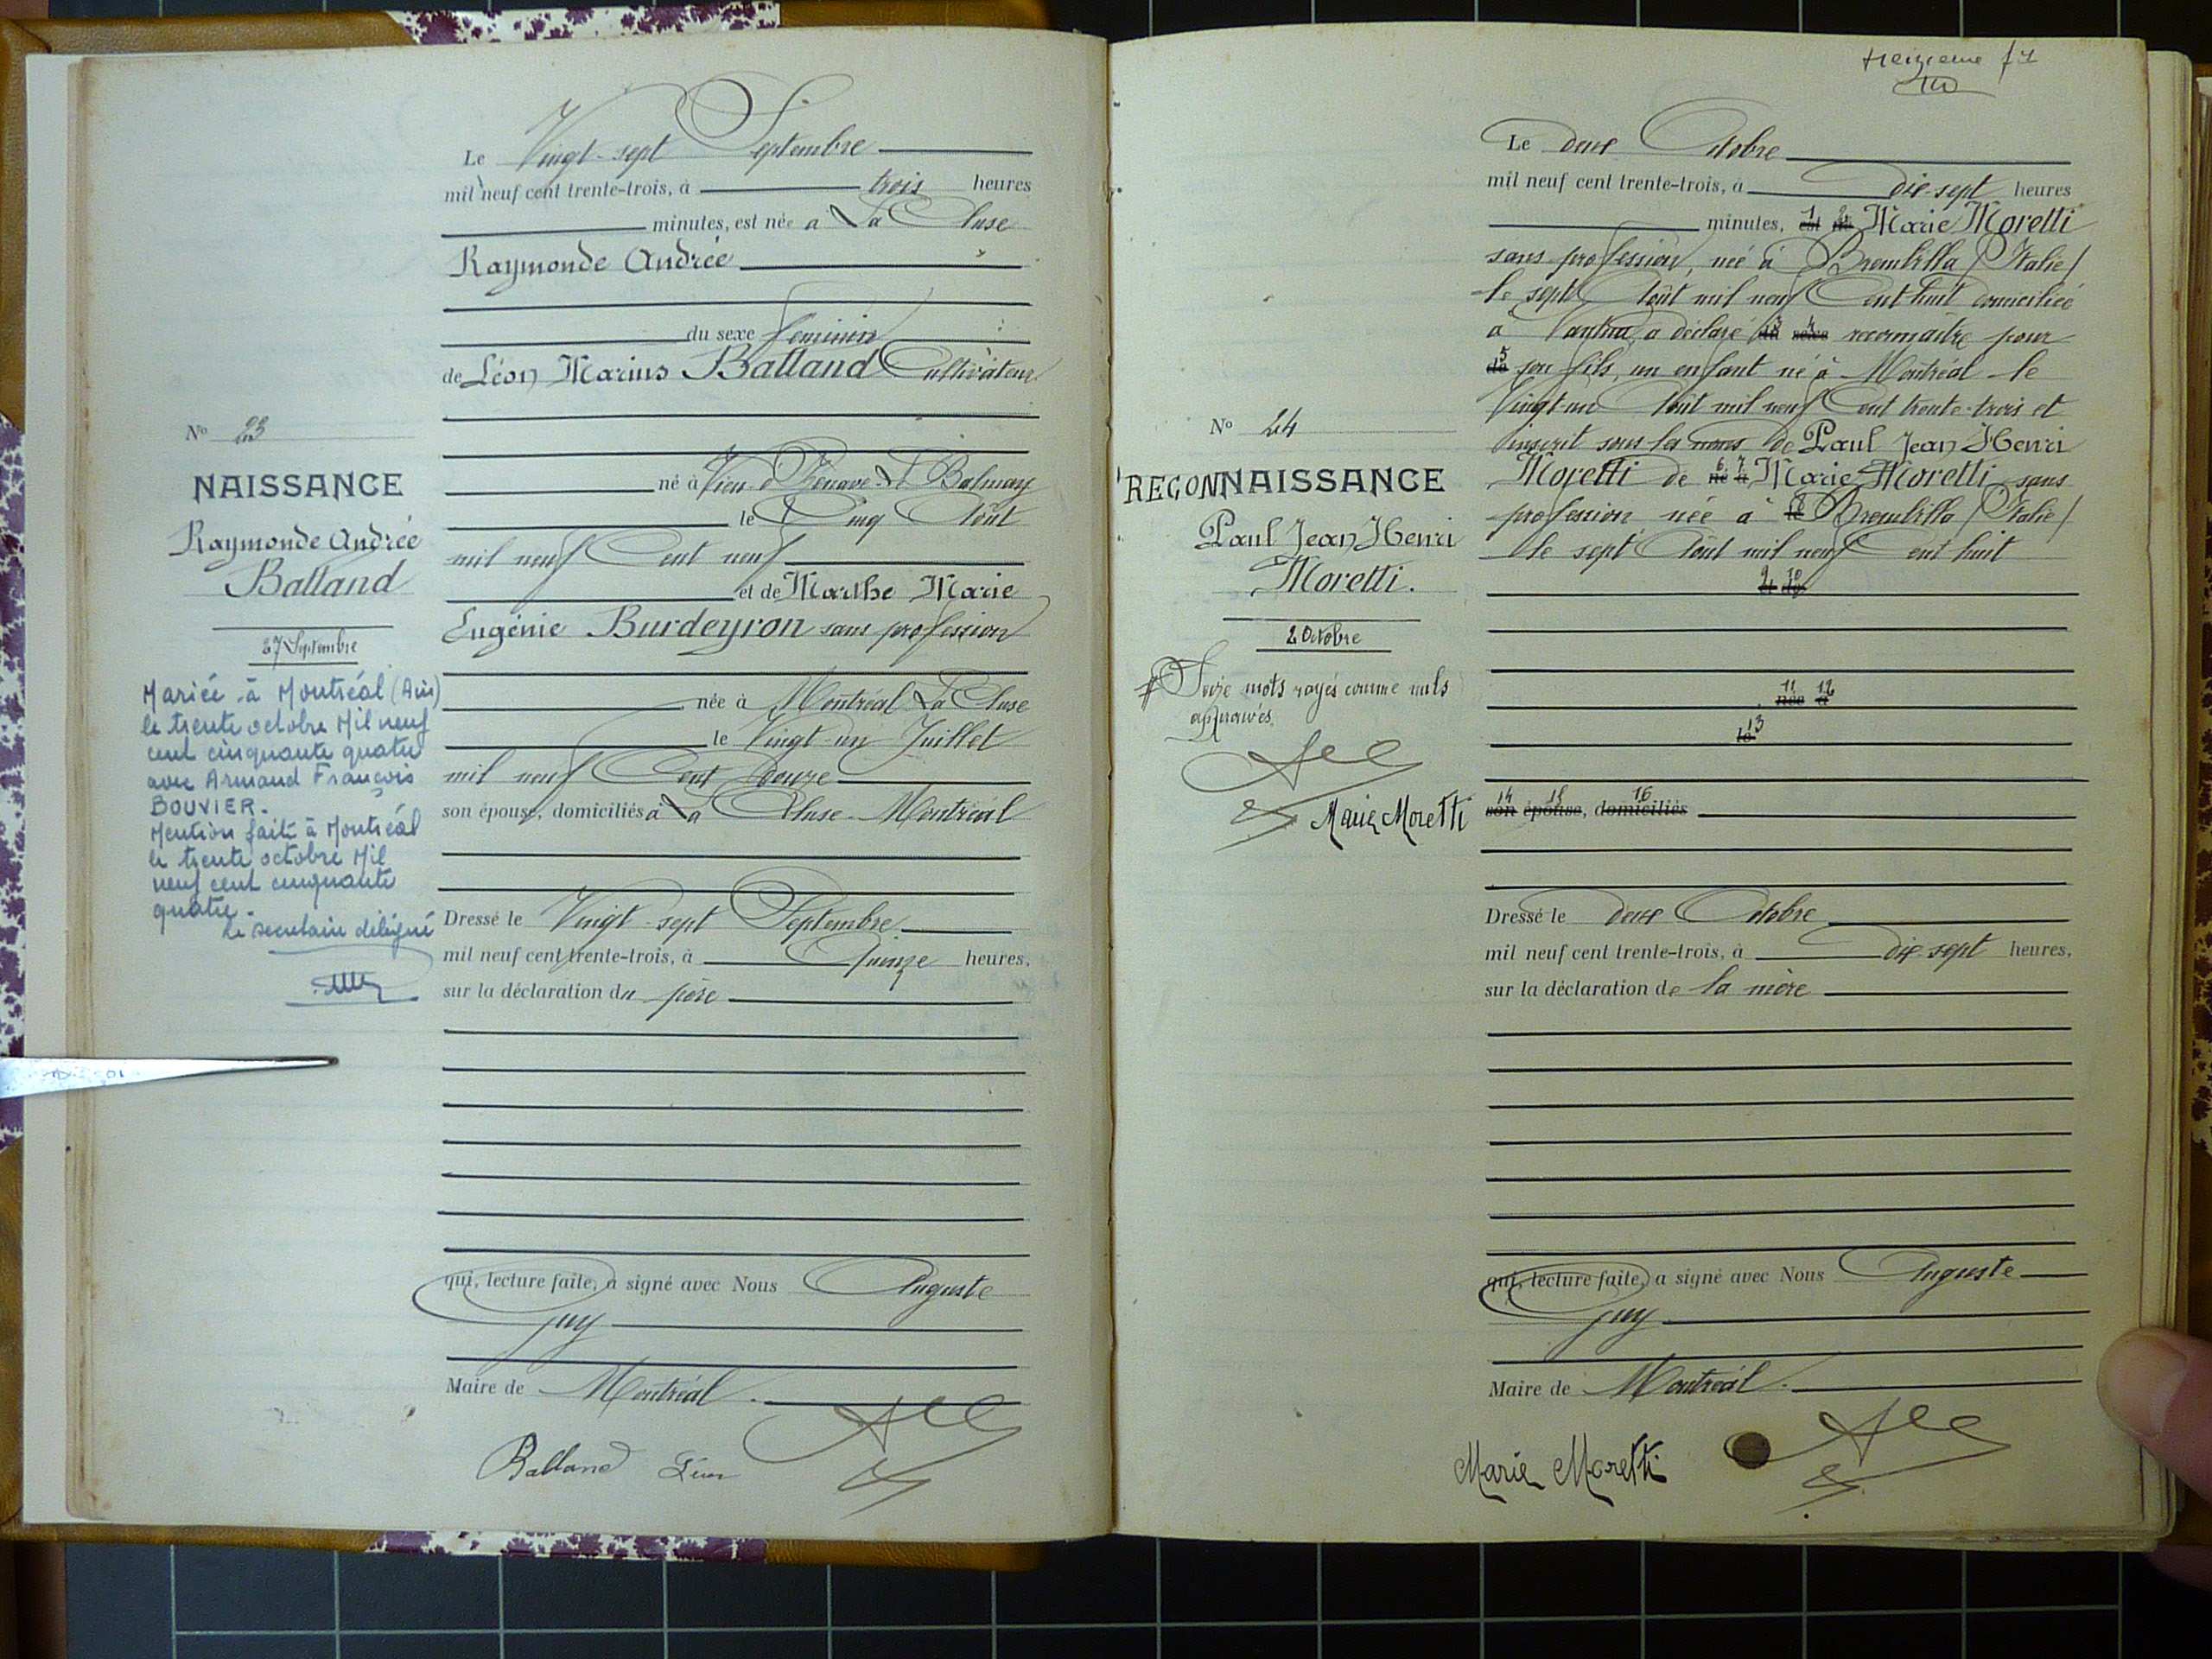 Le Vingt-sept Septembre
mil neuf cent trente-trois, à trois heures
minutes, est née à La Cluse
Raymonde Andrée
du sexe féminin
de Léon Marius Balland Cultivateur
né à Vieu d'Izenave St Balmay
le Cinq Août
mil neuf Cent neuf
et de Marthe Marie
Eugénie Burdeyron sans profession
née à Montréal La Cluse
le Vingt-un Juillet
mil neuf Cent douze
son épouse, domiciliés à La Cluse-Montréal
Dressé le Vingt-sept Septembre
mil neuf cent trente-trois, à Quinze heures,
sur la déclaration du père
qui, lecture faite, a signé avec Nous Auguste
Guy
Maire de Montréal
Balland Léon
N° 23
NAISSANCE
Raymonde Andrée
Balland
27 Septembre
Mariée à Montréal (Ain)
le trente octobre Mil neuf
cent cinquante quatre
avec Armand François
BOUVIER.
Mention faite à Montréal
le trente octobre Mil
neuf cent cinquante
quatre.
Le secrétaire délégué
treizième f
Le deux Octobre
mil neuf cent trente-trois, à Dix-sept heures
minutes, 1 est 2 né Marie Moretti
sans profession, née à Brembilla (Italie)
le sept Août mil neuf Cent huit domiciliée
à Nantua, a déclaré 3 du 4 sexe reconnaître pour
5 de son fils, un enfant né à Montréal le
Vingt-un Août mil neuf Cent trente-trois et
inscrit sous les noms de Paul Jean Henri
Moretti de 6 né 7 à Marie Moretti sans
profession née à le Brembilla (Italie)
le sept Août mil neuf Cent huit
9 et 10 de
11 née 12 à
13 le
14 son 15 épouse, 16 domiciliés
Dressé le deux Octobre
mil neuf cent trente-trois, à dix-sept heures,
sur la déclaration de la mère
qui, lecture faite, a signé avec Nous Auguste
Guy
Maire de Montréal.
Marie Moretti
N° 24
RECONNAISSANCE
Paul Jean Henri
Moretti.
2 Octobre
Seize mots rayés comme nuls
approuvés.
Marie Moretti